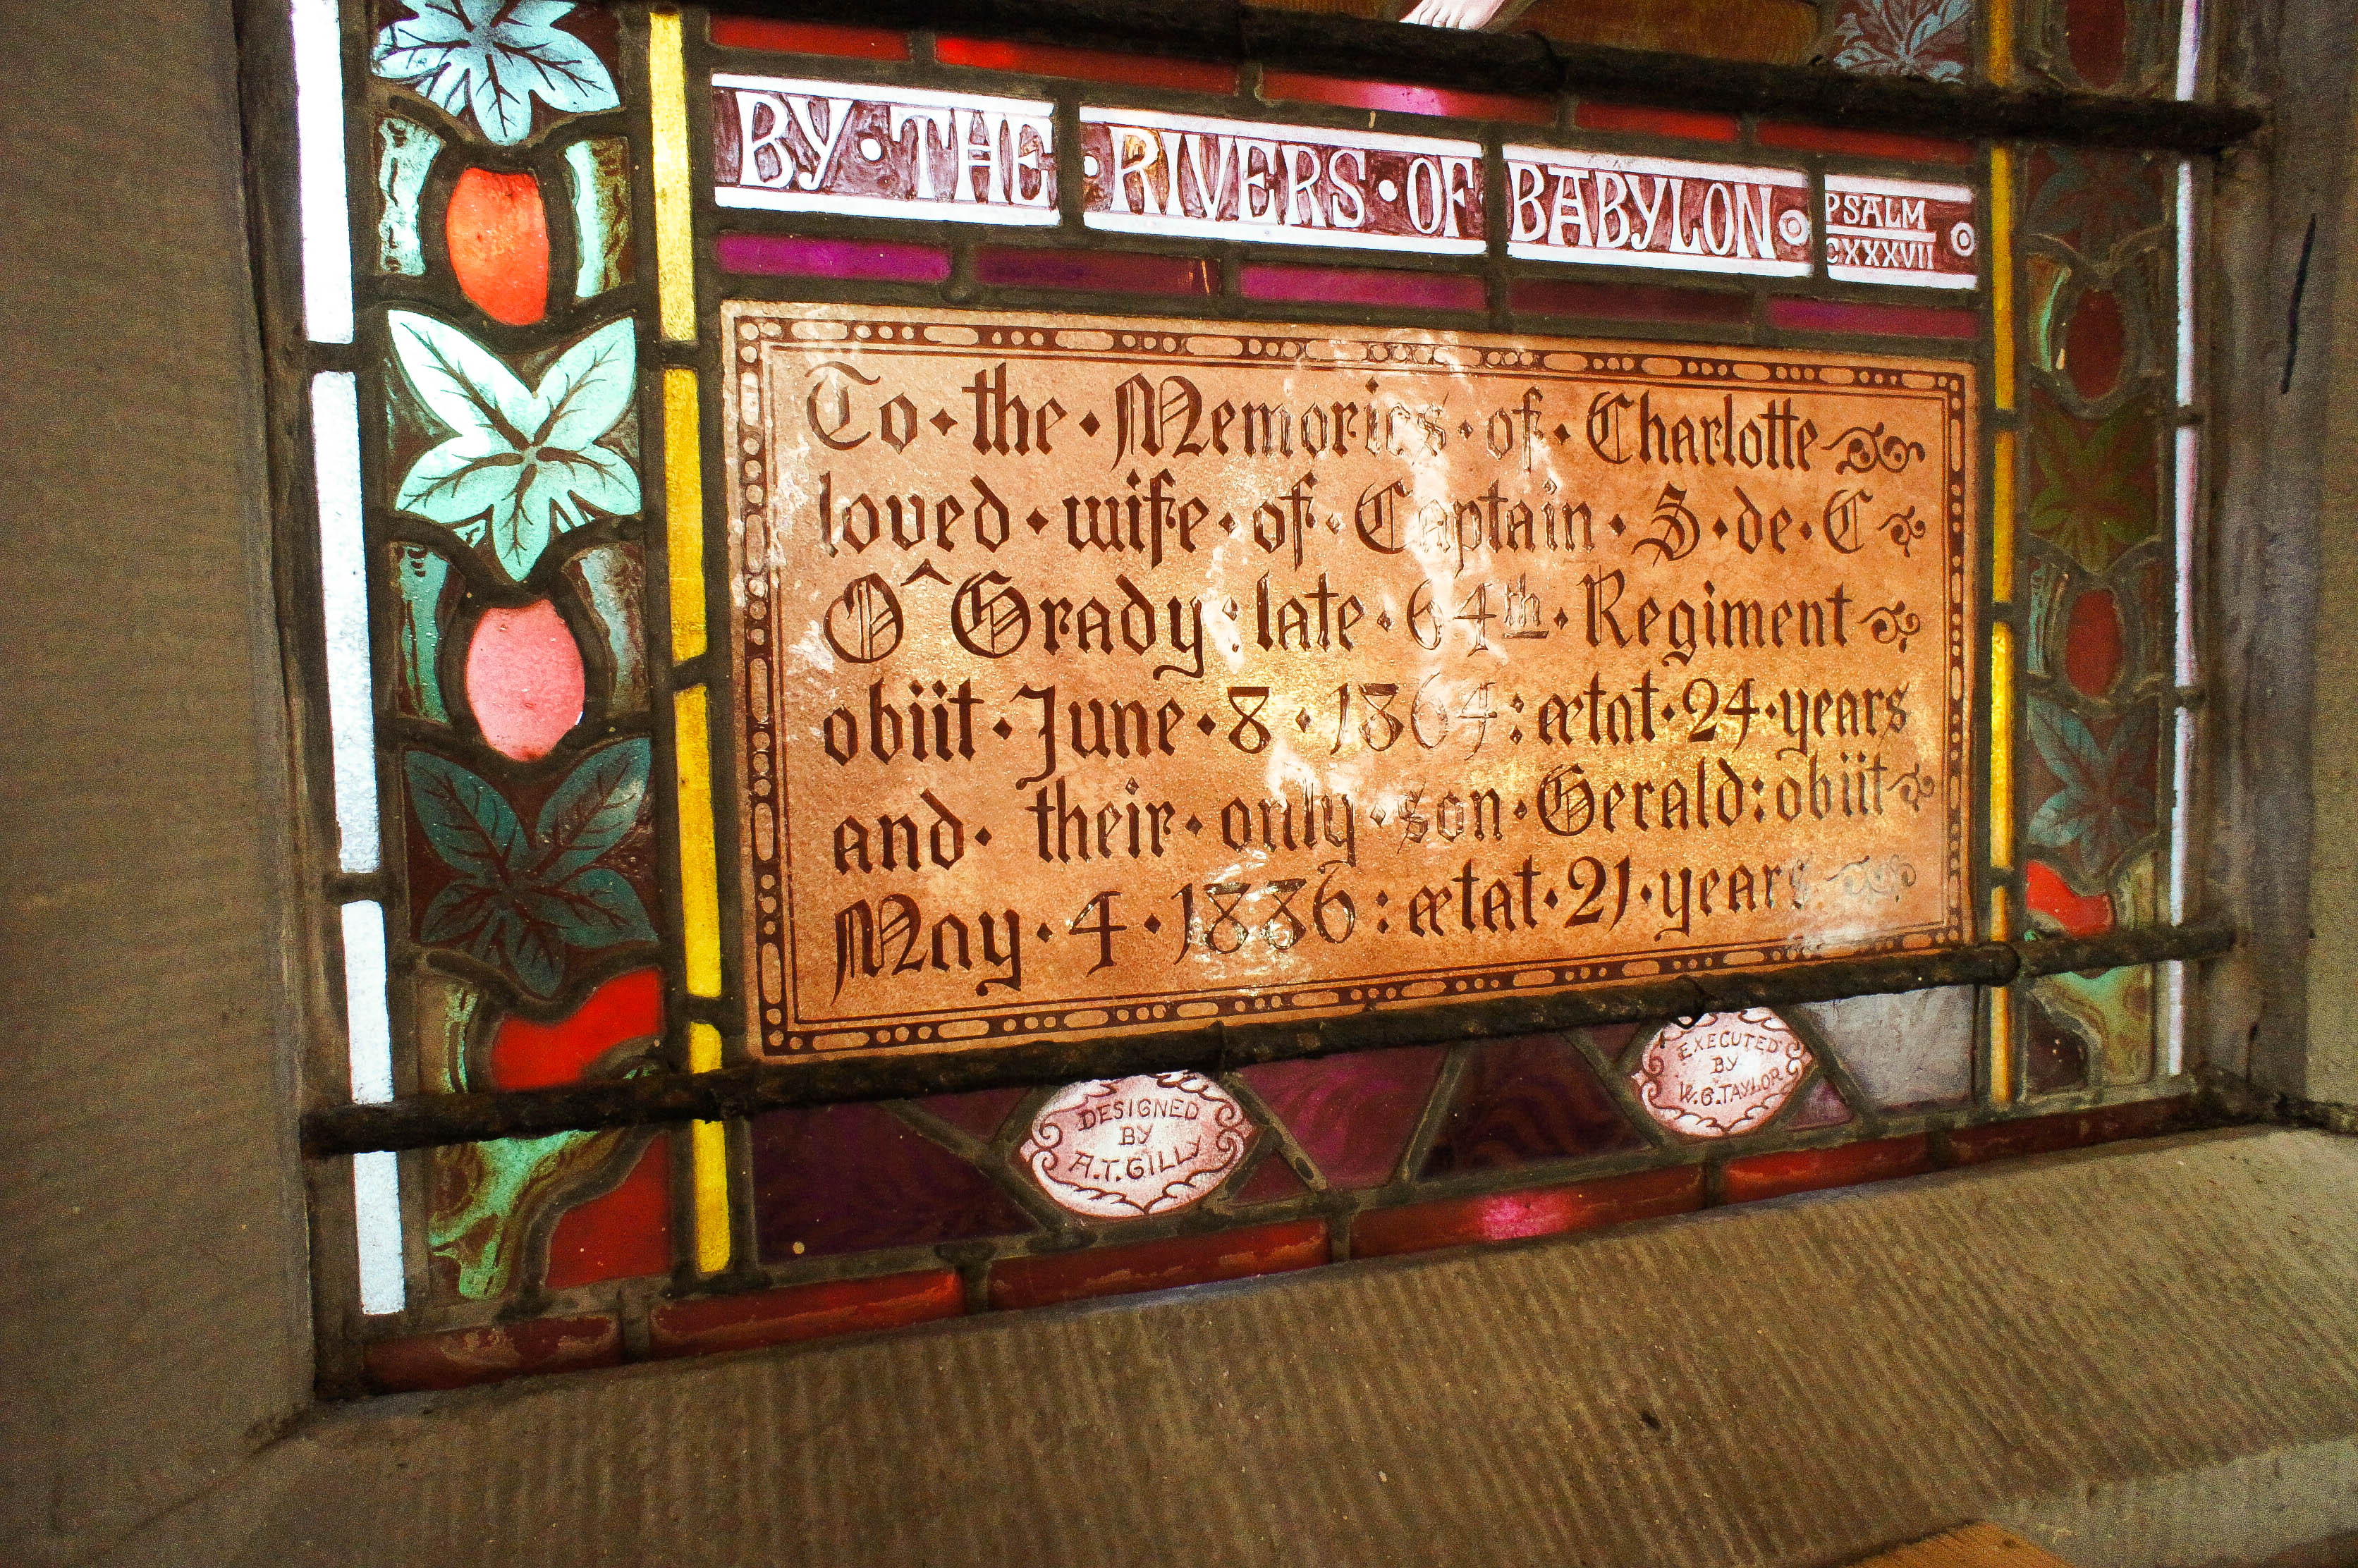 BY · THE · RIVERS · OF BABYLON
PSALM
CXXXVII
To · the · Memories · of · Charlotte
loved · wife · of · Captain · S · de · C
O^Grady : late · 64th · Regiment
obiit · June · 8 · 1864 : ætat · 24 · years
and · their · only · son · Gerald : obiit
May · 4 · 1886 : ætat · 21 · years
DESIGNED
BY
A.T. GILLY
EXECUTED
BY
W.G. TAYLOR